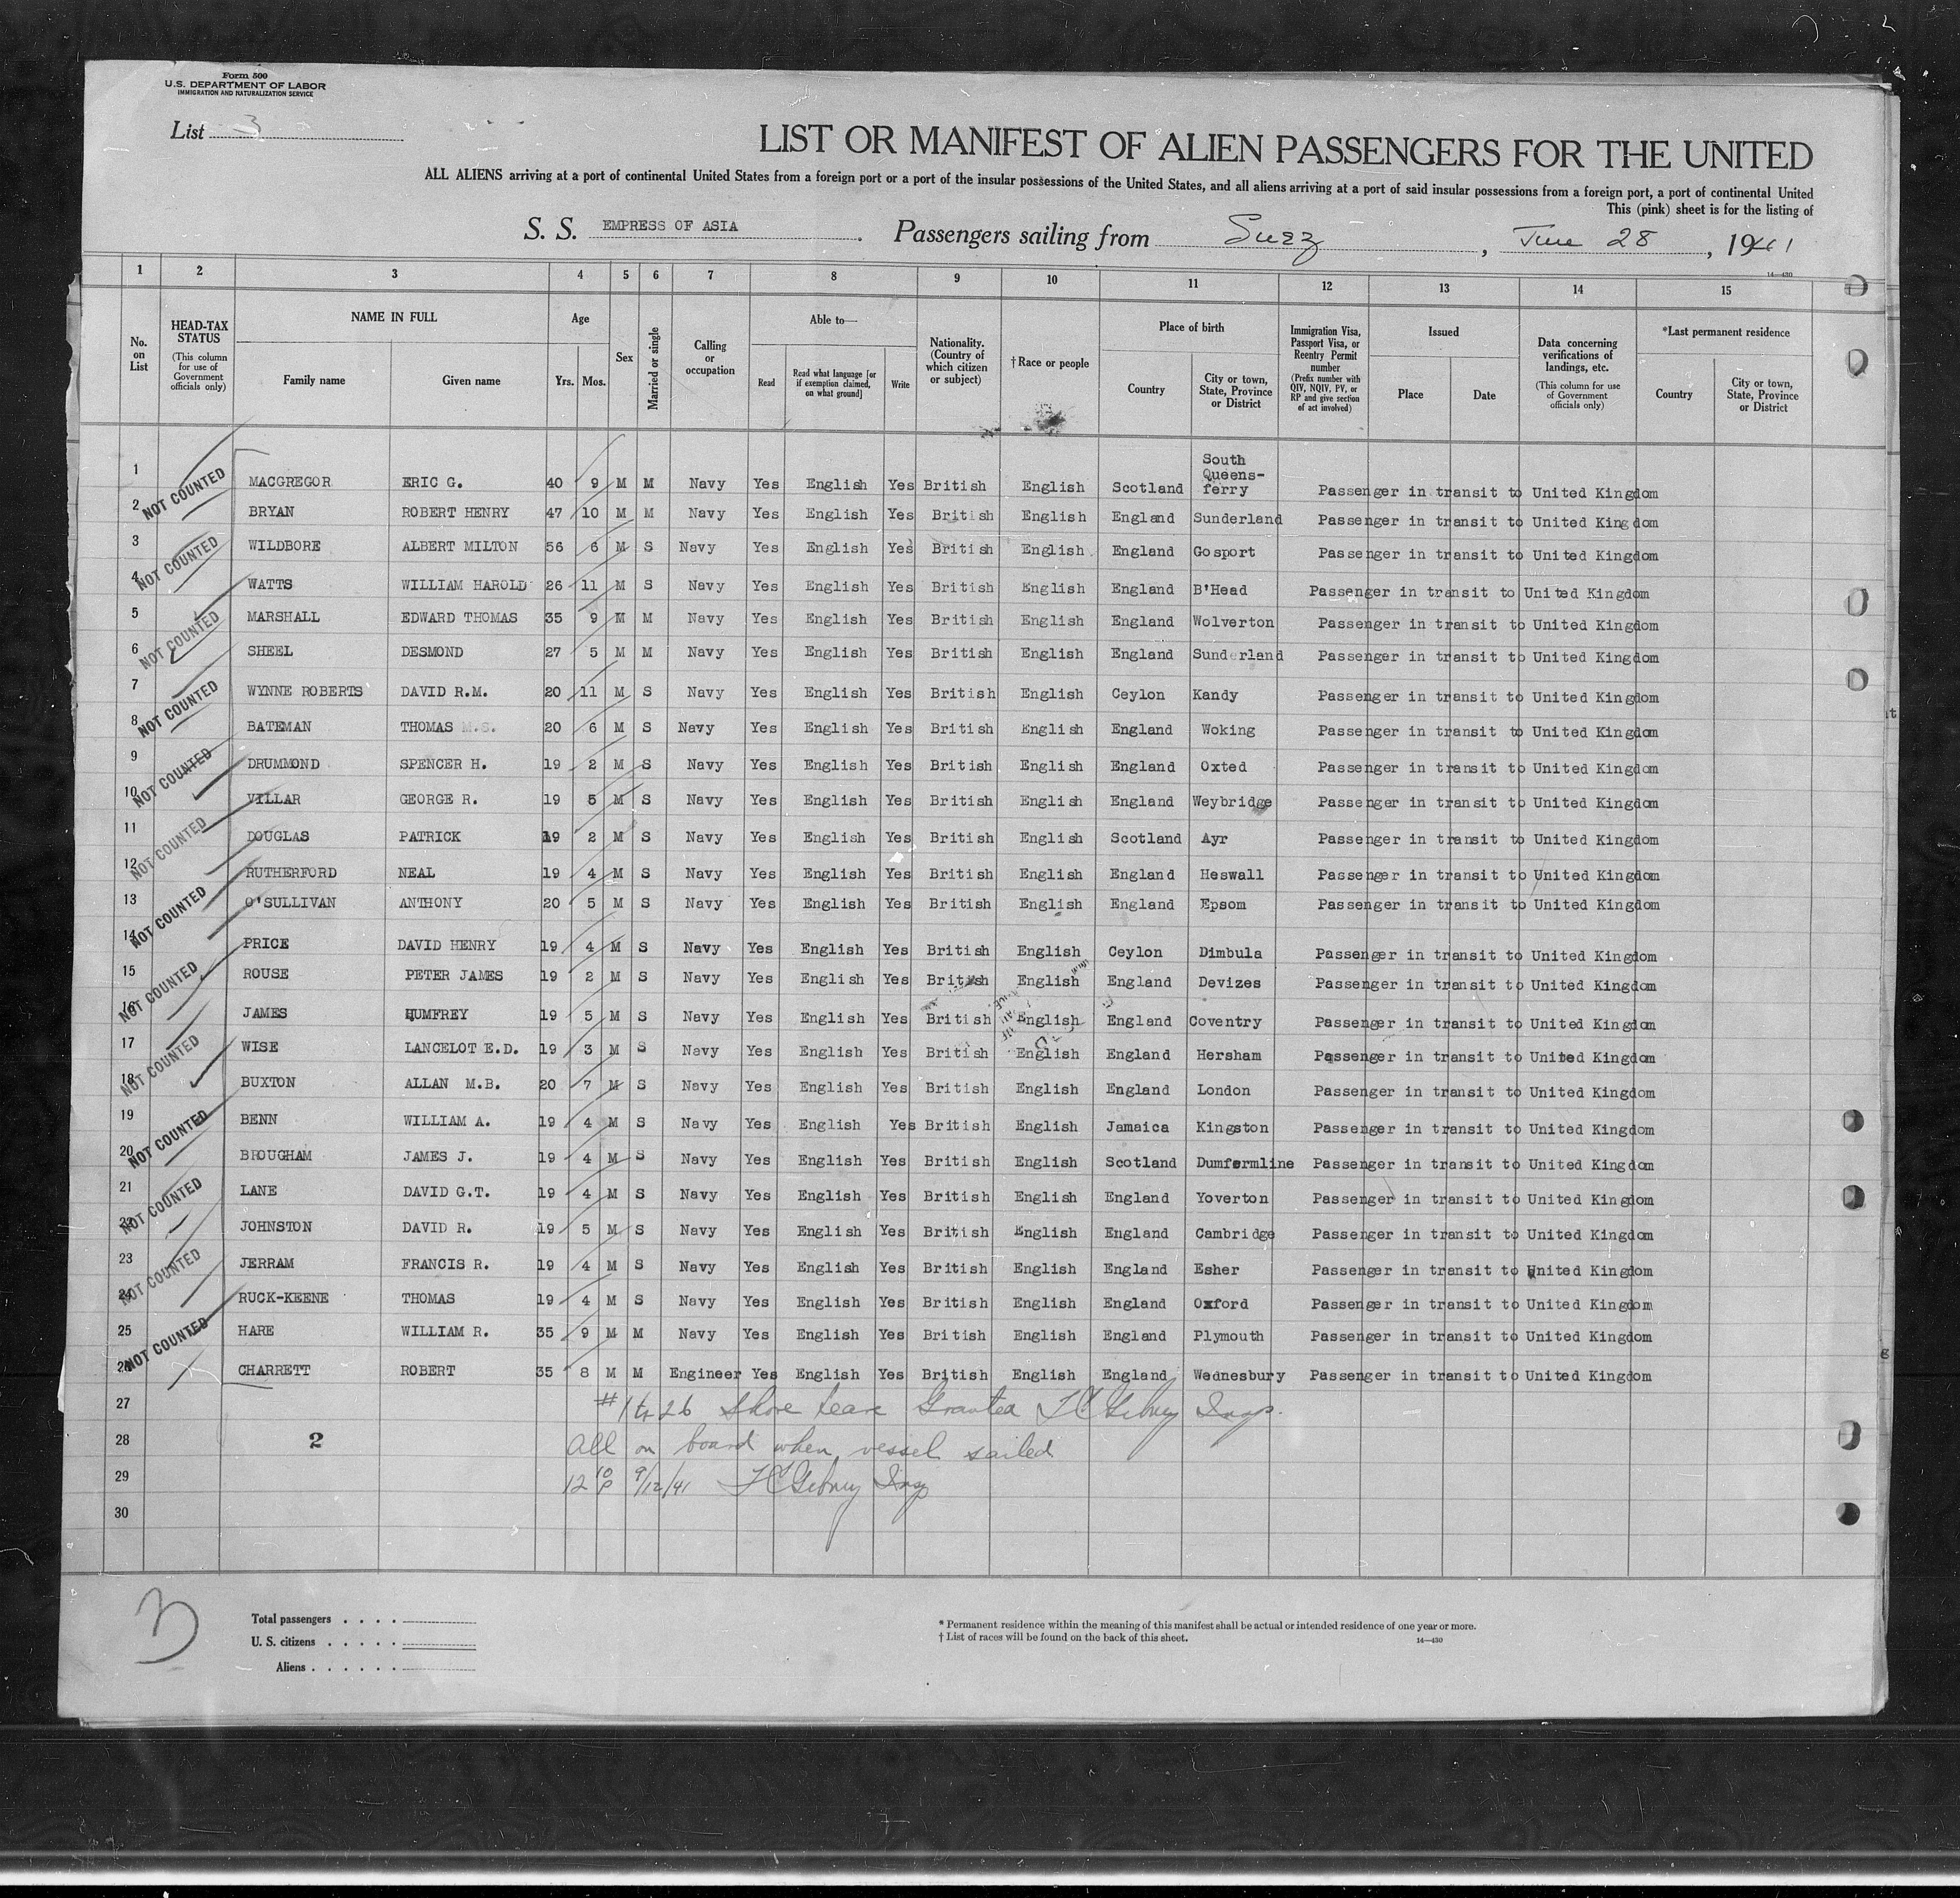 Form 500
U.S. DEPARTMENT OF LABOR
IMMIGRATION AND NATURALIZATION SERVICE
List 3
LIST OR MANIFEST OF ALIEN PASSENGERS FOR THE UNITED
ALL ALIENS arriving at a port of continental United States from a foreign port or a port of the insular possessions of the United States, and all aliens arriving at a port of said insular possessions from a foreign port, a port of continental United
This (pink) sheet is for the listing of
S. S. EMPRESS OF ASIA. Passengers sailing from Suez, June 28, 1941
14—430
1 2 3 4 5 6 7 8 9 10 11 12 13 14 15
No. on List
HEAD-TAX STATUS (This column for use of Government officials only)
NAME IN FULL
Family name Given name
Age
Yrs. Mos.
Sex
Married or single
Calling or occupation
Able to—
Read
Read what language [or if exemption claimed, on what ground]
Write
Nationality. (Country of which citizen or subject)
†Race or people
Place of birth
Country
City or town, State, Province or District
Immigration Visa, Passport Visa, or Reentry Permit number (Prefix number with QIV, NQIV, PV, or RP and give section of act involved)
Issued
Place Date
Data concerning verifications of landings, etc. (This column for use of Government officials only)
*Last permanent residence
Country
City or town, State, Province or District
1 MACGREGOR ERIC G. 40 9 M M Navy Yes English Yes British English Scotland South Queens-ferry Passenger in transit to United Kingdom
NOT COUNTED
2 BRYAN ROBERT HENRY 47 10 M M Navy Yes English Yes British English England Sunderland Passenger in transit to United Kingdom
3 WILDBORE ALBERT MILTON 56 6 M S Navy Yes English Yes British English England Gosport Passenger in transit to United Kingdom
NOT COUNTED
4 WATTS WILLIAM HAROLD 26 11 M S Navy Yes English Yes British English England B'Head Passenger in transit to United Kingdom
5 MARSHALL EDWARD THOMAS 35 9 M M Navy Yes English Yes British English England Wolverton Passenger in transit to United Kingdom
NOT COUNTED
6 SHEEL DESMOND 27 5 M M Navy Yes English Yes British English England Sunderland Passenger in transit to United Kingdom
7 WYNNE ROBERTS DAVID R.M. 20 11 M S Navy Yes English Yes British English Ceylon Kandy Passenger in transit to United Kingdom
NOT COUNTED
8 BATEMAN THOMAS M.S. 20 6 M S Navy Yes English Yes British English England Woking Passenger in transit to United Kingdom
9 DRUMMOND SPENCER H. 19 2 M S Navy Yes English Yes British English England Oxted Passenger in transit to United Kingdom
NOT COUNTED
10 VILLAR GEORGE R. 19 5 M S Navy Yes English Yes British English England Weybridge Passenger in transit to United Kingdom
11 DOUGLAS PATRICK 19 2 M S Navy Yes English Yes British English Scotland Ayr Passenger in transit to United Kingdom
NOT COUNTED
12 RUTHERFORD NEAL 19 4 M S Navy Yes English Yes British English England Heswall Passenger in transit to United Kingdom
13 O'SULLIVAN ANTHONY 20 5 M S Navy Yes English Yes British English England Epsom Passenger in transit to United Kingdom
NOT COUNTED
14 PRICE DAVID HENRY 19 4 M S Navy Yes English Yes British English Ceylon Dimbula Passenger in transit to United Kingdom
15 ROUSE PETER JAMES 19 2 M S Navy Yes English Yes British English England Devizes Passenger in transit to United Kingdom
NOT COUNTED
16 JAMES HUMFREY 19 5 M S Navy Yes English Yes British English England Coventry Passenger in transit to United Kingdom
17 WISE LANCELOT E.D. 19 3 M S Navy Yes English Yes British English England Hersham Passenger in transit to United Kingdom
NOT COUNTED
18 BUXTON ALLAN M.B. 20 7 M S Navy Yes English Yes British English England London Passenger in transit to United Kingdom
19 BENN WILLIAM A. 19 4 M S Navy Yes English Yes British English Jamaica Kingston Passenger in transit to United Kingdom
NOT COUNTED
20 BROUGHAM JAMES J. 19 4 M S Navy Yes English Yes British English Scotland Dumfermline Passenger in transit to United Kingdom
21 LANE DAVID G.T. 19 4 M S Navy Yes English Yes British English England Yoverton Passenger in transit to United Kingdom
NOT COUNTED
22 JOHNSTON DAVID R. 19 5 M S Navy Yes English Yes British English England Cambridge Passenger in transit to United Kingdom
23 JERRAM FRANCIS R. 19 4 M S Navy Yes English Yes British English England Esher Passenger in transit to United Kingdom
NOT COUNTED
24 RUCK-KEENE THOMAS 19 4 M S Navy Yes English Yes British English England Oxford Passenger in transit to United Kingdom
25 HARE WILLIAM R. 35 9 M M Navy Yes English Yes British English England Plymouth Passenger in transit to United Kingdom
NOT COUNTED
26 CHARRETT ROBERT 35 8 M M Engineer Yes English Yes British English England Wednesbury Passenger in transit to United Kingdom
27 #1 to 26 Shore leave Granted Insp.
28 2 All on board when vessel sailed
29 12 10 P 9/12/41 Insp
30
3
Total passengers . . . .
U. S. citizens . . . . .
Aliens . . . . . .
* Permanent residence within the meaning of this manifest shall be actual or intended residence of one year or more.
† List of races will be found on the back of this sheet.
14—430